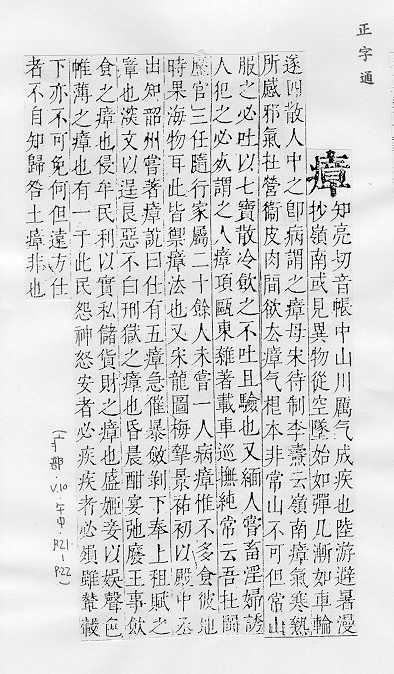 正字通
瘴 知亮切音帳中山川厲气成疾也陸游避暑漫
抄嶺南或見異物從空墜始如彈几漸如車輪
遂四散人中之卽病謂之瘴母宋待制李燾云嶺南瘴氣寒熱
所感邪氣在營衞皮肉間欲去瘴气根本非常山不可但常山
服之必吐以七寶散冷飲之不吐且驗也又緬人嘗畜淫婦誘
人犯之必㱡謂之人瘴項甌東雜著載車巡撫純常云吾在閩
歷官三任隨行家屬二十餘人未嘗一人病瘴惟不多食彼地
時果海物耳此皆禦瘴法也又宋龍圖梅摯景祐初以殿中丞
出知韶州嘗著瘴說曰仕有五瘴急催暴斂剝下奉上租賦之
瘴也淡文以逞良惡不白刑獄之瘴也昏晨酣宴弛廢王事飲
食之瘴也侵牟民利以實私儲貨財之瘴也盛姬妾以娛聲色
帷薄之瘴也有一于此民怨神怒安者必疾疾者必殞雖輦轂
下亦不可免何但遠方仕
者不自知歸咎土瘴非也
(疒部. V.10 午中. P.21-P.22)